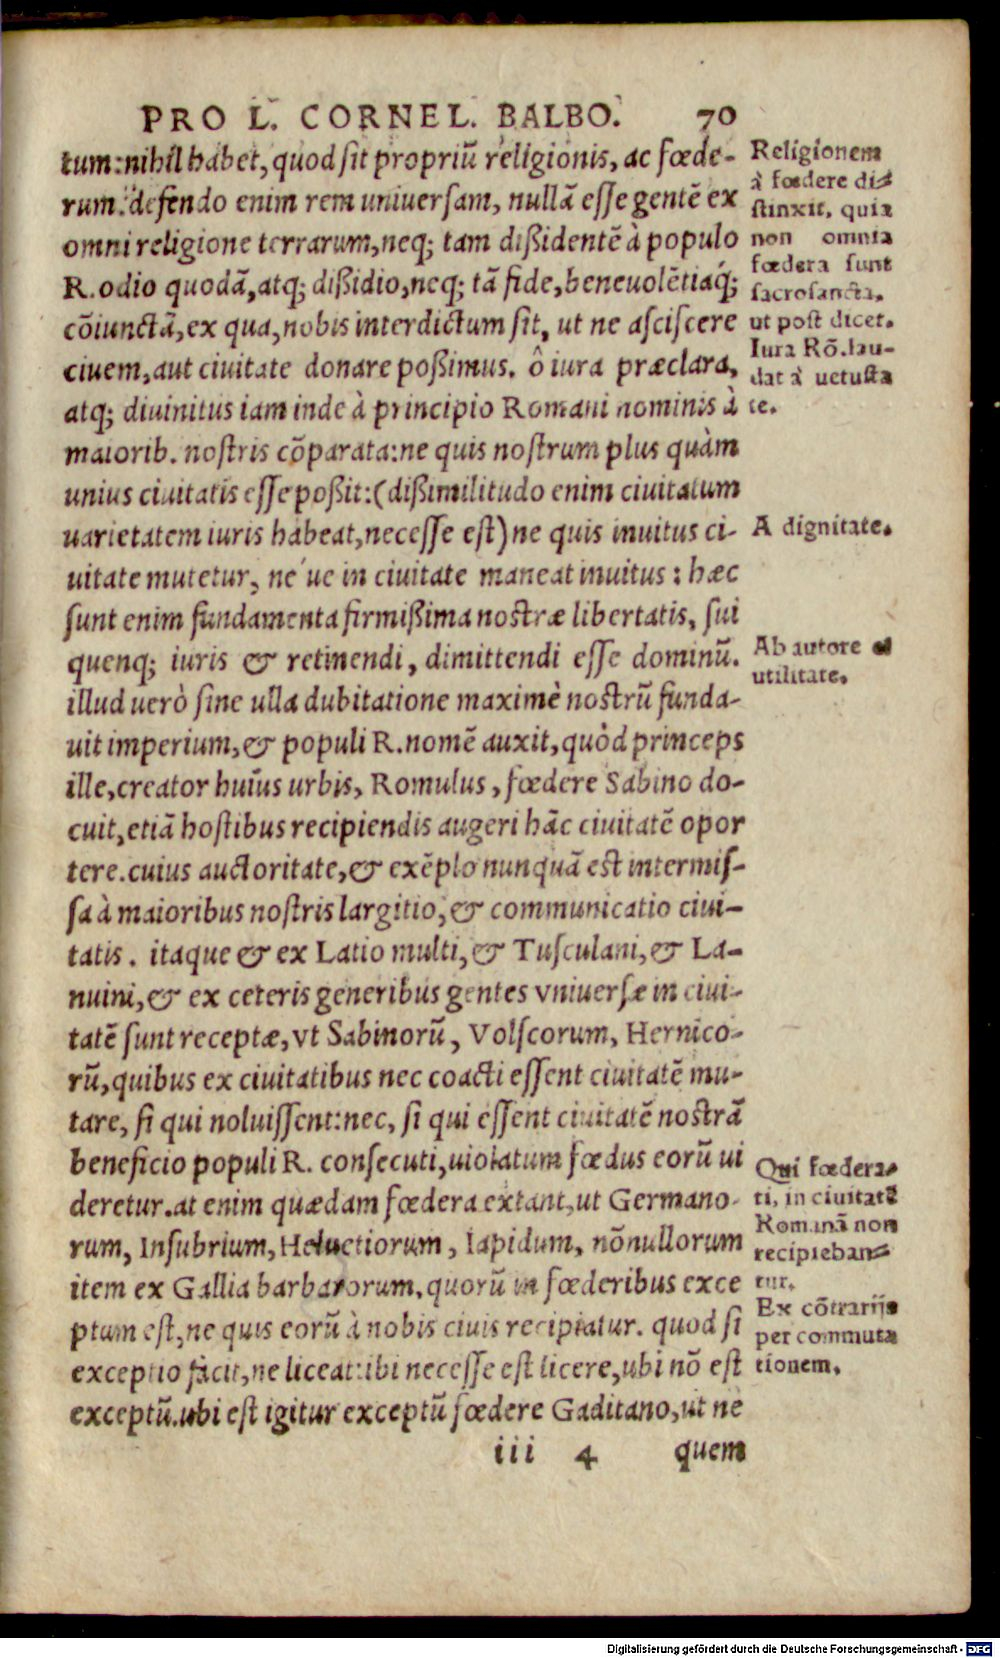 PRO L. CORNEL. BALBO. 70
tum: nihil habet, quod sit propriū religionis, ac fœde-
rum. defendo enim rem uniuersam, nullā esse gentē ex
omni religione terrarum, neq; tam dißidentē à populo
R. odio quodā, atq; dißidio, neq; tā fide, beneuolētiáq;
cōiunctā, ex qua, nobis interdictum sit, ut ne asciscere
ciuem, aut ciuitate donare poßimus. ô iura præclara,
atq; diuinitus iam inde à principio Romani nominis à
maiorib. nostris cōparata: ne quis nostrum plus quàm
unius ciuitatis esse poßit: (dißimilitudo enim ciuitatum
uarietatem iuris habeat, necesse est) ne quis inuitus ci-
uitate mutetur, ne ue in ciuitate maneat inuitus: hæc
sunt enim fundamenta firmißima nostræ libertatis, sui
quenq; iuris & retinendi, dimittendi esse dominū.
illud uerò sine ulla dubitatione maximè nostrū funda-
uit imperium, & populi R. nomē auxit, quòd princeps
ille, creator huius urbis, Romulus, fœdere Sabino do-
cuit, etiā hostibus recipiendis augeri hāc ciuitatē opor
tere. cuius auctoritate, & exēplo nunquā est intermis-
sa à maioribus nostris largitio, & communicatio ciui-
tatis. itaque & ex Latio multi, & Tusculani, & La-
nuini, & ex ceteris generibus gentes vniuersæ in ciui-
tatē sunt receptæ, vt Sabinorū, Volscorum, Hernico-
rū, quibus ex ciuitatibus nec coacti essent ciuitatē mu-
tare, si qui noluissent: nec, si qui essent ciuitatē nostrā
beneficio populi R. consecuti, uiolatum fœdus eorū ui
deretur. at enim quædam fœdera extant, ut Germano-
rum, Insubrium, Heluetiorum, Iapidum, nōnullorum
item ex Gallia barbarorum, quorū in fœderibus exce
ptum est, ne quis eorū à nobis ciuis recipiatur. quod si
exceptio facit, ne liceat: ibi necesse est licere, ubi nō est
exceptū. ubi est igitur exceptū fœdere Gaditano, ut ne
iii 4 quem
Religionem
à fœdere di-
stinxit, quia
non omnia
fœdera sunt
sacrosancta,
ut post dicet.
Iura Rō. lau-
dat à uetusta
te.
A dignitate.
Ab autore et
utilitate.
Qui fœdera-
ti, in ciuitatē
Romanā non
recipieban-
tur.
Ex cōtrariis
per commuta
tionem.
Digitalisierung gefördert durch die Deutsche Forschungsgemeinschaft - DFG